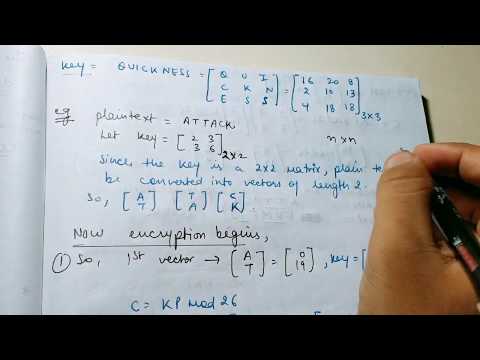 key = QUICKNESS = [Q U I = [16 20 8
C K N 2 10 13
E S S] 4 18 18] 3x3
eg plaintext = ATTACK
Let key = [2 3 n x n
3 6] 2x2
Since the key is a 2x2 matrix, plain te
be converted into vectors of length 2.
So, [A [T [C
T] A] K].
Now encryption begins,
① So, 1st vector → [A = [0 , key = [
T] 19]
C = KP mod 26